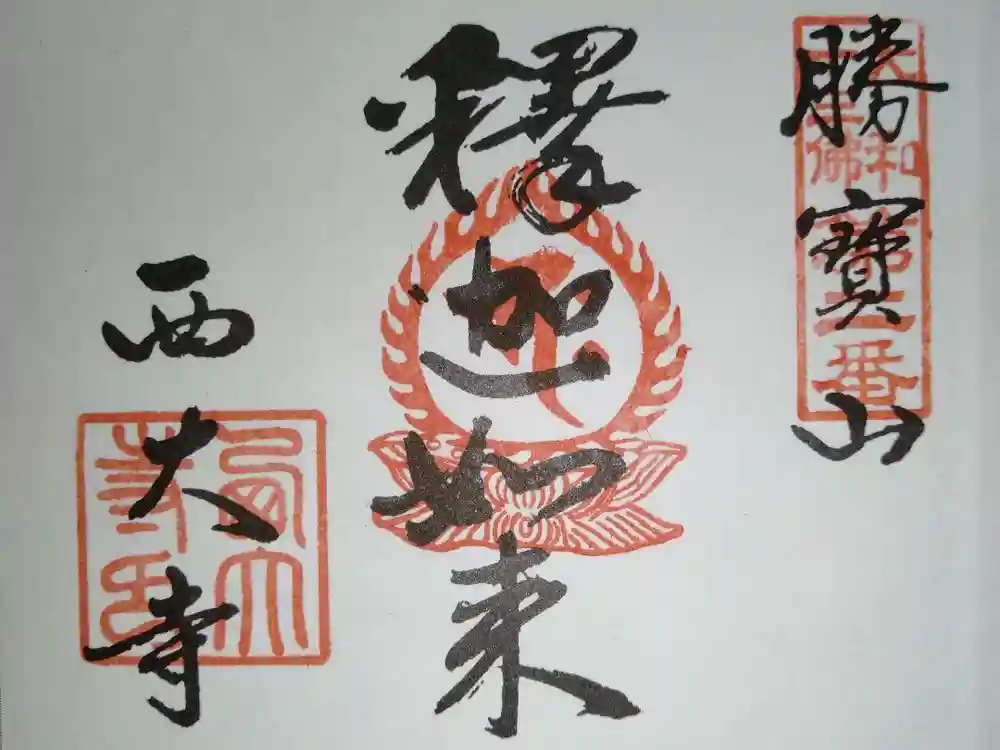 勝寶山
大和十三佛第二番
釋迦如来
西大寺
西大寺印